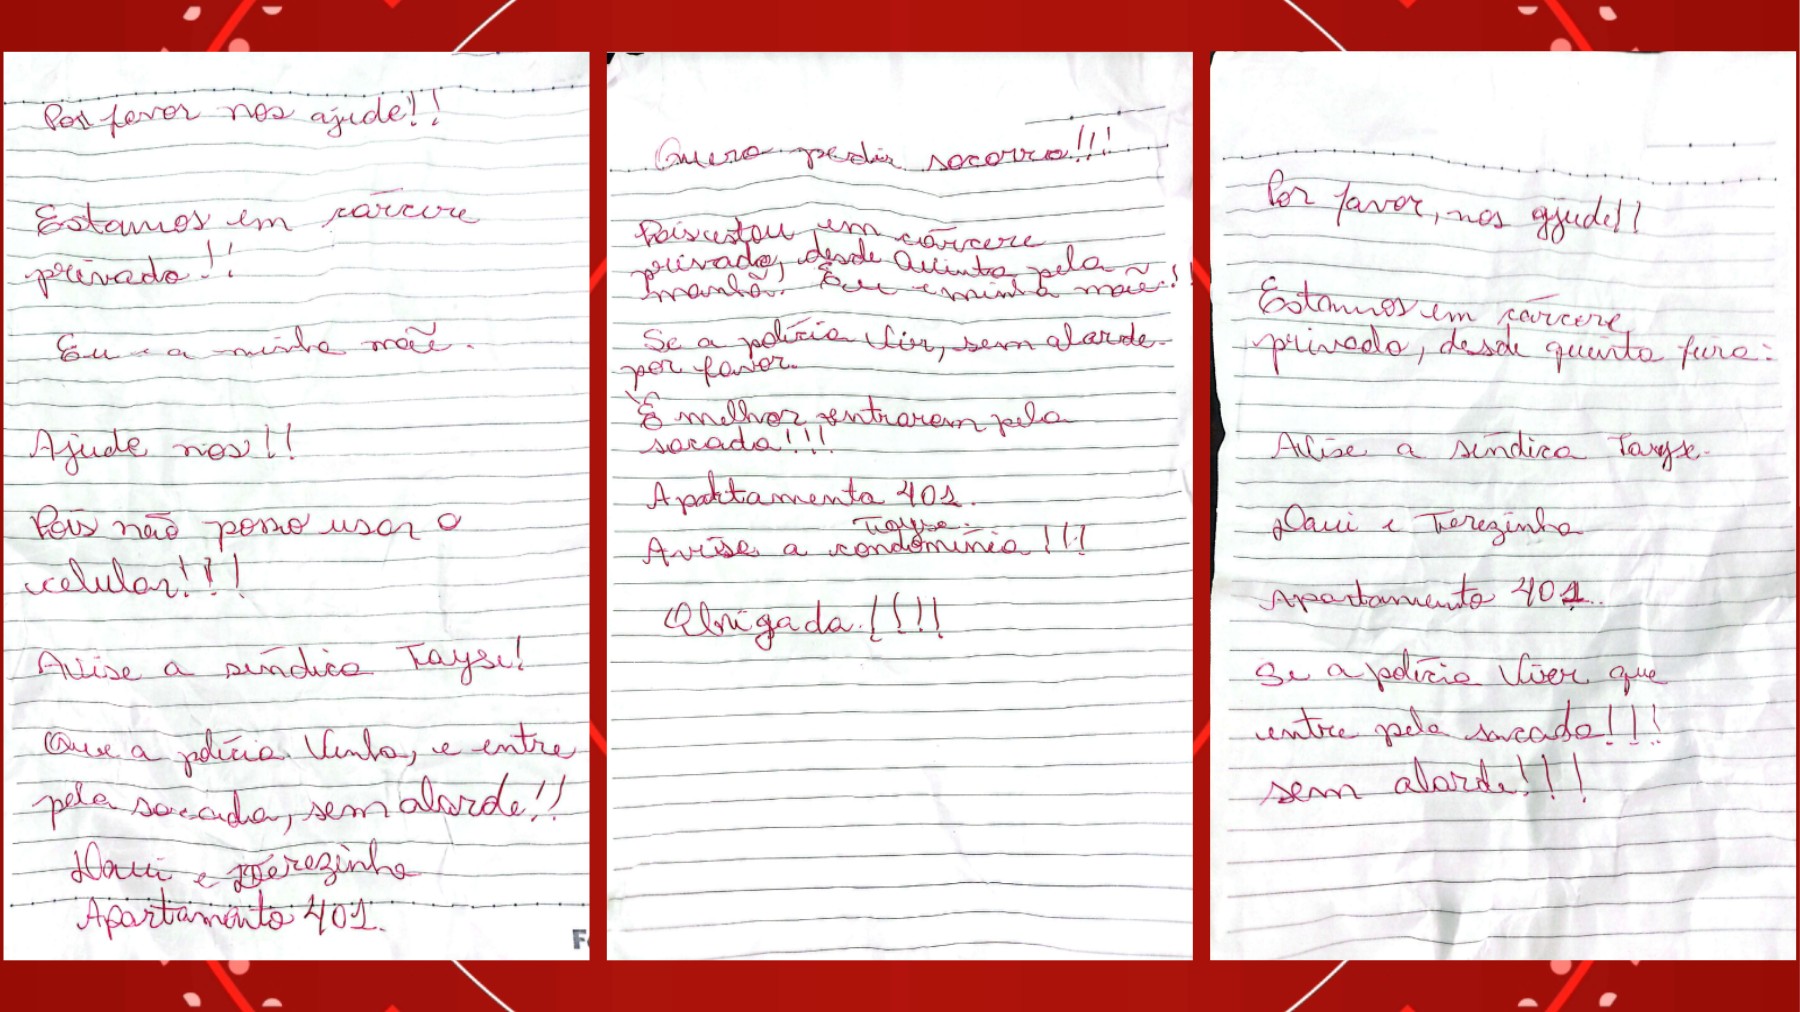 Por favor nos ajude!!
Estamos em cárcere
privado!!
Eu e a minha mãe.
Ajude nos!!
Pois não posso usar o
celular!!!
Avise a síndica Tayse!
Que a polícia venha, e entre
pela sacada, sem alarde!!
Davi e Terezinha
Apartamento 401.
Quero pedir socorro!!!
Pois estou em cárcere
privado, desde Quinta pela
manhã. Eu e minha mãe!!
Se a polícia vir, sem alarde
por favor.
É melhor entrarem pela
sacada!!!
Apartamento 401.
Tayse.
Avise a condomínia!!!
Obrigada!!!!
Por favor, nos ajude!!
Estamos em cárcere,
privado, desde quinta fera:
Avise a síndica Tayse.
Davi e Terezinha
Apartamento 401.
Se a polícia vier que
entre pela sacada!!!
sem alarde!!!